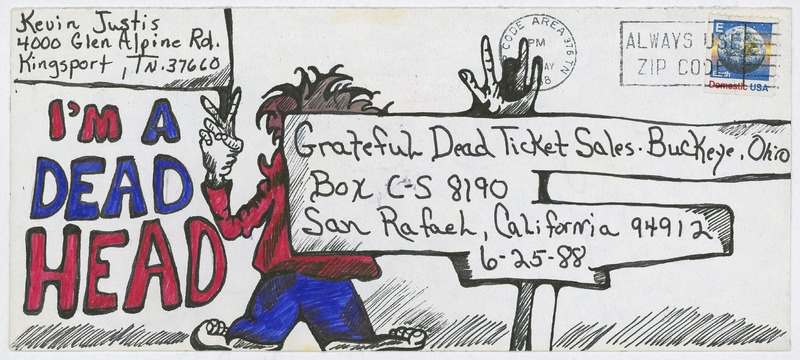 Kevin Justis
4000 Glen Alpine Rd.
Kingsport, TN. 37660
CODE AREA 376 TN
PM
ALWAYS USE
ZIP CODE
E
Earth
Domestic USA
I'M A
DEAD
HEAD
Grateful Dead Ticket Sales. Buckeye, Ohio
Box C-S 8190
San Rafael, California 94912
6-25-88